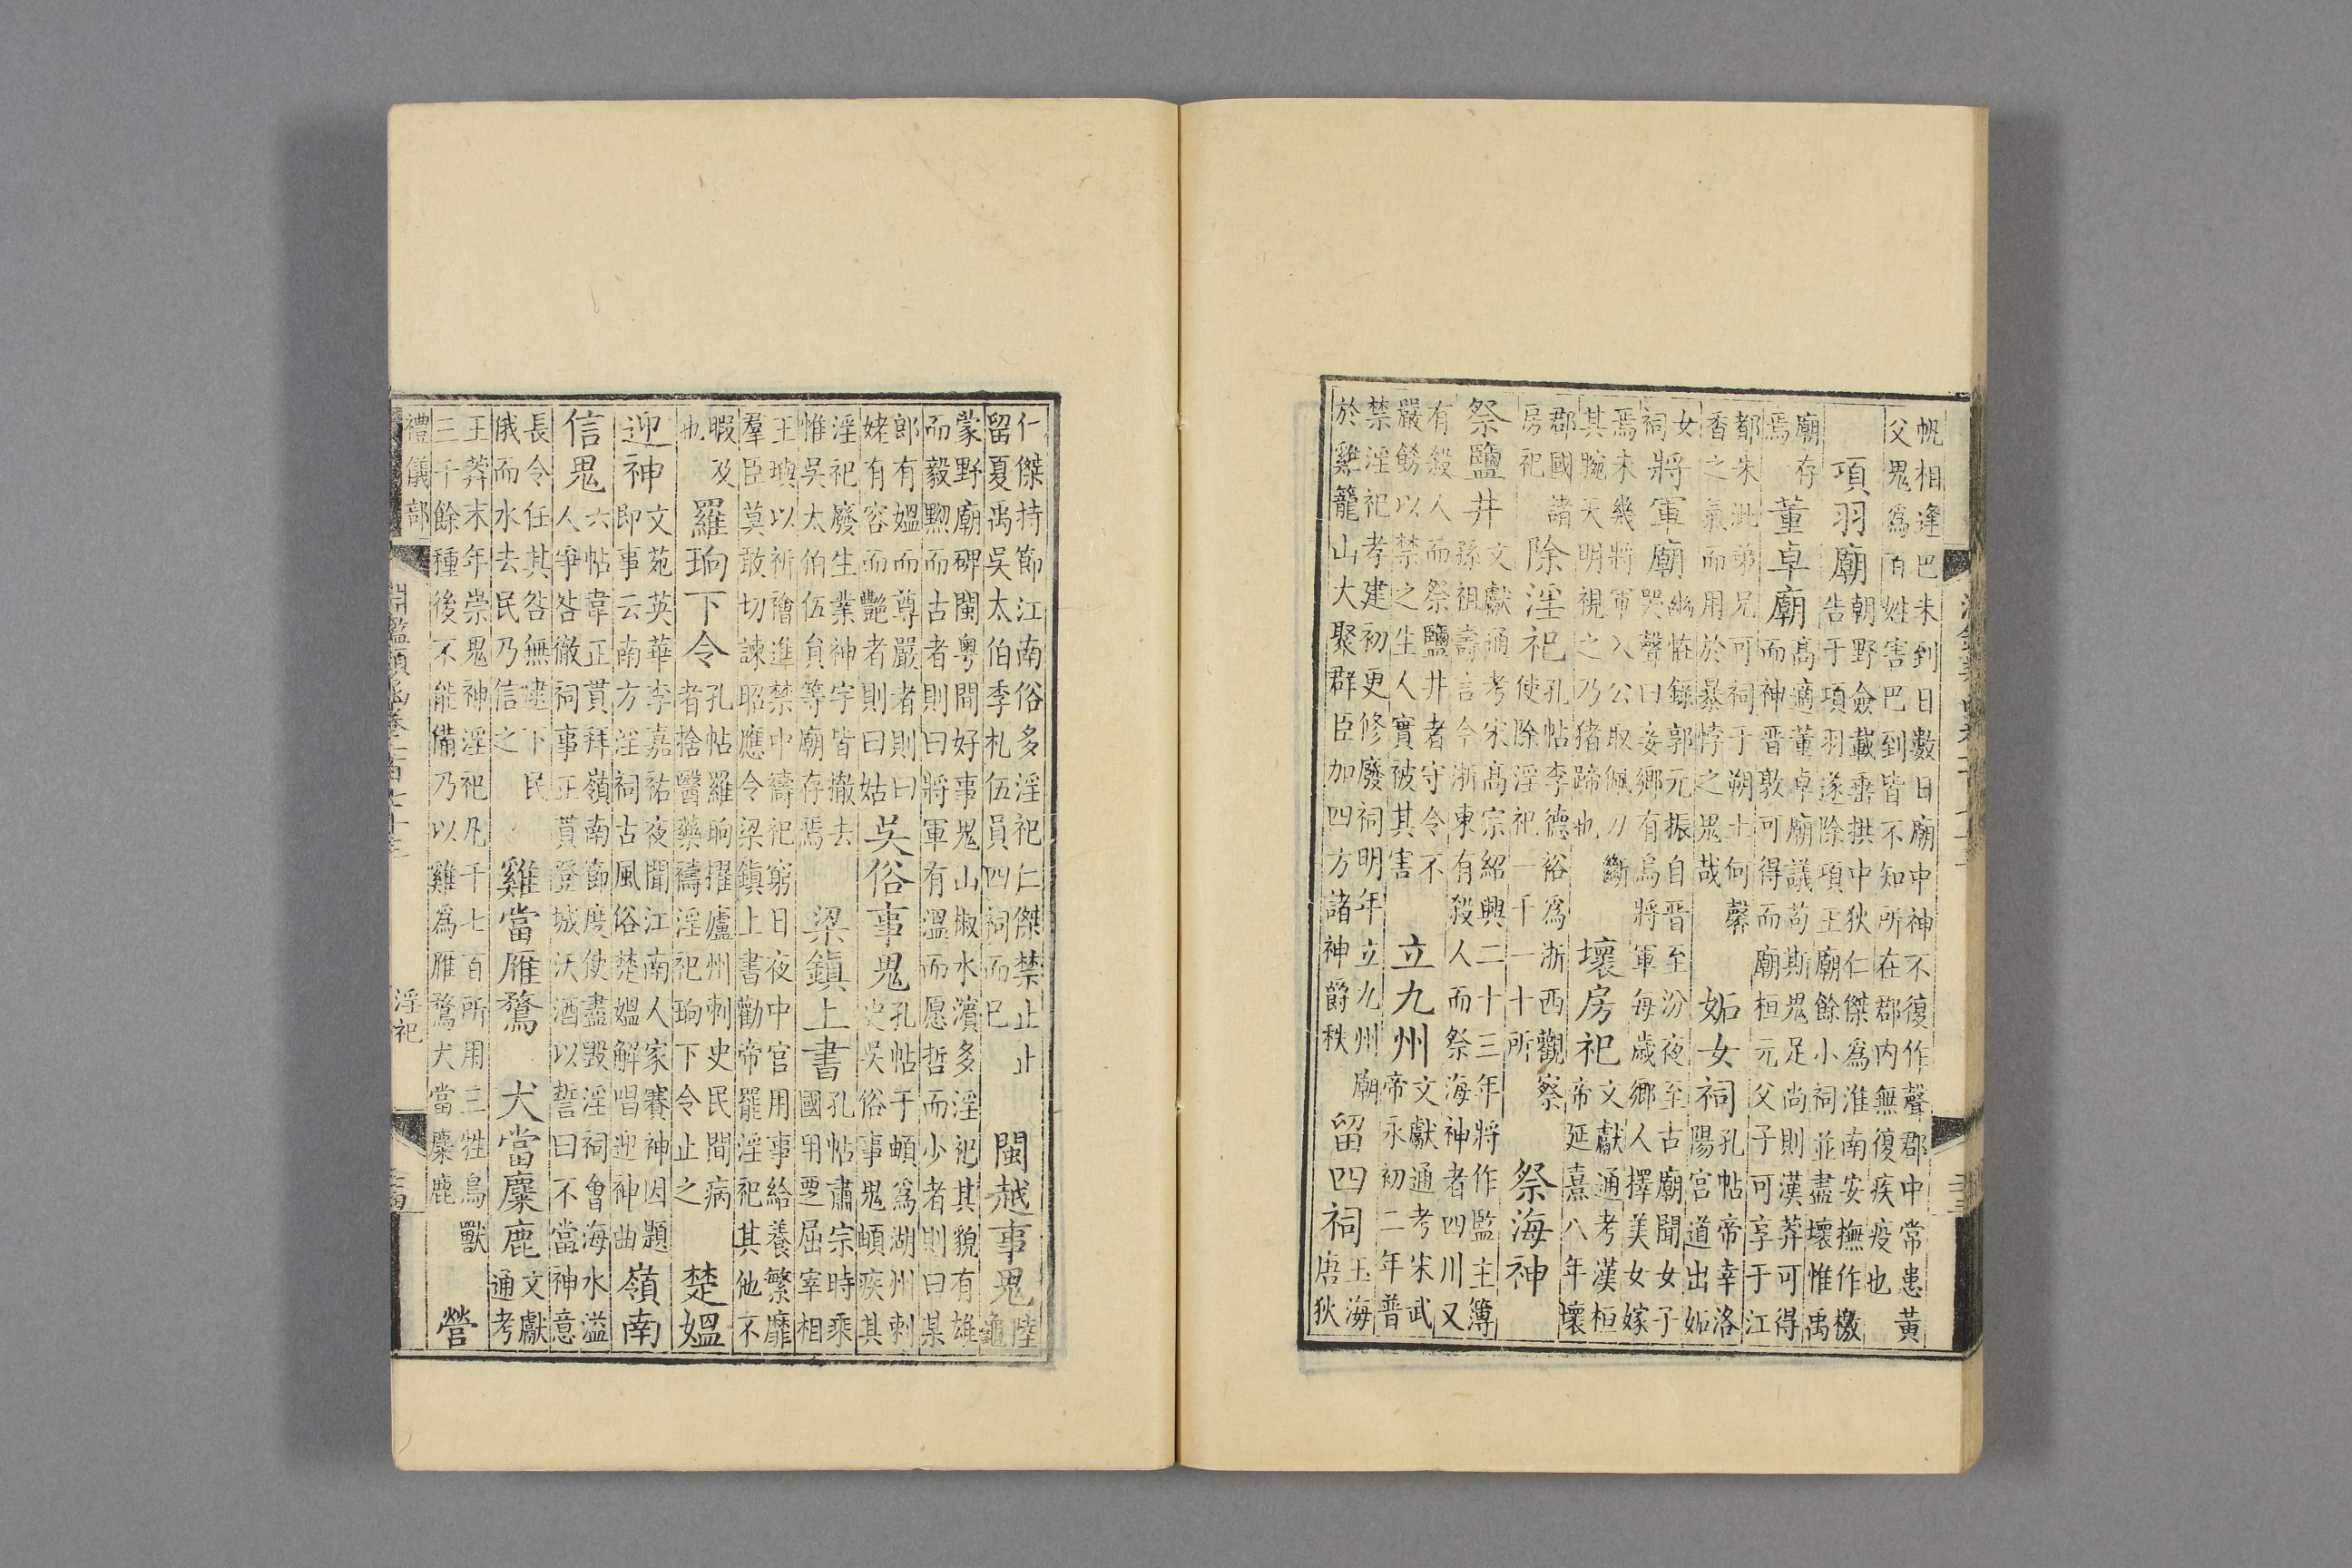 帆相逢巴未到日數日廟中神不復作聲郡中常患黃
父鬼爲百姓害巴到皆不知所在郡内無復疾疫也
項羽廟
朝野僉載垂拱中狄仁傑爲淮南安撫作檄
告于項羽遂除項王廟餘小祠並盡壞惟禹
廟存
焉
董卓廟
高適董卓廟議苟斯鬼足尚則漢莽可得
而神晋敦可得而廟桓元父子可享于江
都朱泚弟兄可祠于朔土何馨
香之氣而用於暴悖之鬼哉
妬女祠
孔帖帝幸洛
陽宫道出妬
女
祠
將軍廟
幽恠錄郭元振自晋至汾夜至古廟聞女子
哭聲曰妾鄉有烏將軍每歲鄉人擇美女嫁
焉未幾將軍入公取佩刀斷
其腕天明視之乃猪蹄也
壞房祀
文獻通考漢桓
帝延熹八年壞
郡國諸
房祀
除淫祀
孔帖李德裕爲浙西觀察
使除淫祀一千一十所
祭海神
祭鹽井
文獻通考宋高宗紹興二十三年將作監主簿
孫祖壽言今浙東有殺人而祭海神者四川又
有殺人而祭鹽井者守令不
嚴飭以禁之生人實被其害
立九州
廟
文獻通考宋武
帝永初二年普
禁淫祀孝建初更修廢祠明年立九州
於雞籠山大聚群臣加四方諸神爵秩
留四祠
玉海
唐狄
仁傑持節江南俗多淫祀仁傑禁止止
留夏禹吳太伯季札伍員四祠而已
閩越事鬼
陸
龜
蒙野廟碑閩粵間好事鬼山椒水濱多淫祀其貌有雄
而毅黝而古者則曰將軍有溫而愿哲而少者則曰某
郎有媼而尊嚴者則曰
姥有容而艷者則曰姑
吳俗事鬼
孔帖于頔爲湖州刺
史吳俗事鬼頔疾其
淫祀廢生業神宇皆撤去
惟吳太伯伍員等廟存焉
梁鎮上書
孔帖肅宗時乘
國用要屈宰相
王璵以祈禬進禁中禱祀窮日夜中官用事給養繁靡
羣臣莫敢切諫昭應令梁鎮上書勸帝罷淫祀其他不
暇及
也
羅珦下令
孔帖羅珦擢廬州刺史民間病
者捨醫藥禱淫祀珦下令止之
楚媼
迎神
文苑英華李嘉祐夜聞江南人家賽神因題
即事云南方淫祠古風俗楚媼解唱迎神曲
嶺南
信鬼
六帖韋正貫拜嶺南節度使盡毀淫祠會海水溢
人爭咎徹祠事正貫登城沃酒以誓曰不當神意
長令任其咎無逮下民
俄而水去民乃信之
雞當雁鶩
犬當麋鹿
文獻
通考
王莽末年崇鬼神淫祀凡千七百所用三牲鳥獸
三千餘種後不能備乃以雞爲雁鶩犬當麋鹿
營
禮儀部
淵鑑類函卷一百七十三
淫祀